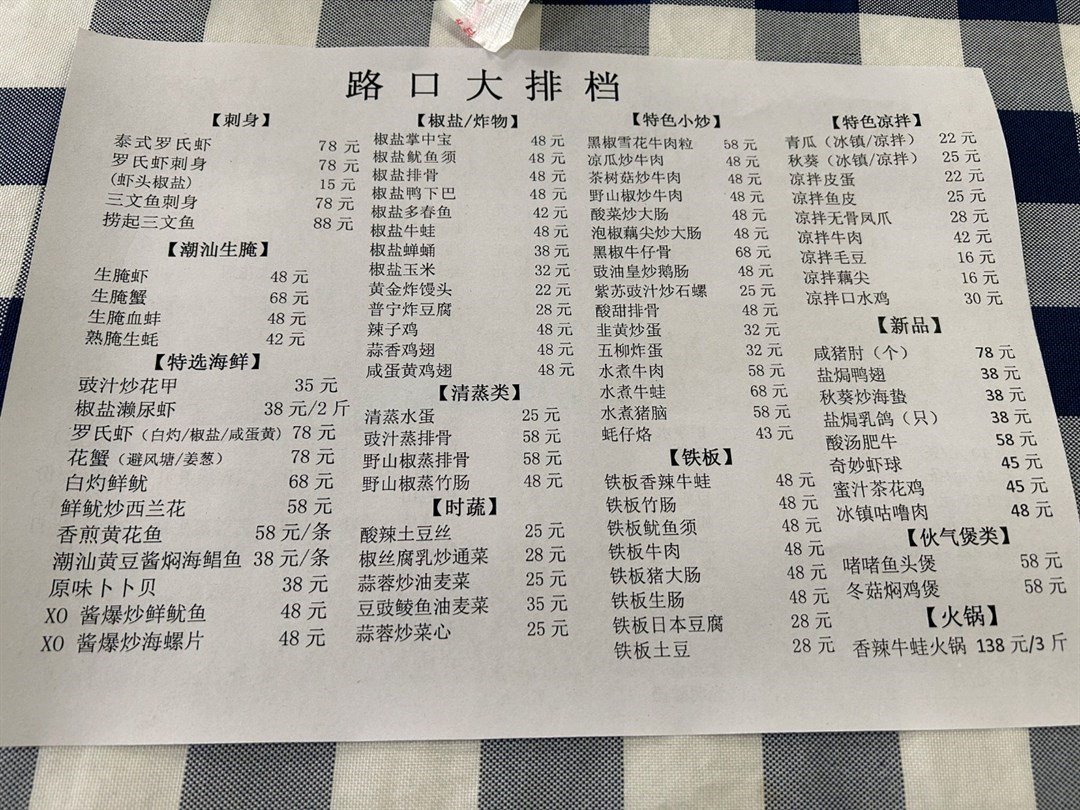 路口大排档
【刺身】
泰式罗氏虾 78 元
罗氏虾刺身 78 元
(虾头椒盐) 15 元
三文鱼刺身 78 元
捞起三文鱼 88 元
【潮汕生腌】
生腌虾 48 元
生腌蟹 68 元
生腌血蚌 48 元
熟腌生蚝 42 元
【特选海鲜】
豉汁炒花甲 35 元
椒盐濑尿虾 38 元/2 斤
罗氏虾（白灼/椒盐/咸蛋黄) 78 元
花蟹（避风塘/姜葱） 78 元
白灼鲜鱿 68 元
鲜鱿炒西兰花 58 元
香煎黄花鱼 58 元/条
潮汕黄豆酱焖海鲳鱼 38 元/条
原味卜卜贝 38 元
XO 酱爆炒鲜鱿鱼 48 元
XO 酱爆炒海螺片 48 元
【椒盐/炸物】
椒盐掌中宝 48 元
椒盐鱿鱼须 48 元
椒盐排骨 48 元
椒盐鸭下巴 48 元
椒盐多春鱼 42 元
椒盐牛蛙 48 元
椒盐蝉蛹 38 元
椒盐玉米 32 元
黄金炸馒头 22 元
普宁炸豆腐 28 元
辣子鸡 48 元
蒜香鸡翅 48 元
咸蛋黄鸡翅 48 元
【清蒸类】
清蒸水蛋 25 元
豉汁蒸排骨 58 元
野山椒蒸排骨 58 元
野山椒蒸竹肠 48 元
【时蔬】
酸辣土豆丝 25 元
椒丝腐乳炒通菜 28 元
蒜蓉炒油麦菜 25 元
豆豉鲮鱼油麦菜 35 元
蒜蓉炒菜心 25 元
【特色小炒】
黑椒雪花牛肉粒 58 元
凉瓜炒牛肉 48 元
茶树菇炒牛肉 48 元
野山椒炒牛肉 48 元
酸菜炒大肠 48 元
泡椒藕尖炒大肠 48 元
黑椒牛仔骨 68 元
豉油皇炒鹅肠 48 元
紫苏豉汁炒石螺 25 元
酸甜排骨 48 元
韭黄炒蛋 32 元
五柳炸蛋 32 元
水煮牛肉 58 元
水煮牛蛙 68 元
水煮猪脑 58 元
蚝仔烙 43 元
【铁板】
铁板香辣牛蛙 48 元
铁板竹肠 48 元
铁板鱿鱼须 48 元
铁板牛肉 48 元
铁板猪大肠 48 元
铁板生肠 48 元
铁板日本豆腐 28 元
铁板土豆 28 元
【特色凉拌】
青瓜（冰镇/凉拌） 22 元
秋葵（冰镇/凉拌） 25 元
凉拌皮蛋 22 元
凉拌鱼皮 25 元
凉拌无骨凤爪 28 元
凉拌牛肉 42 元
凉拌毛豆 16 元
凉拌藕尖 16 元
凉拌口水鸡 30 元
【新品】
咸猪肘（个） 78 元
盐焗鸭翅 38 元
秋葵炒海蛰 38 元
盐焗乳鸽（只） 38 元
酸汤肥牛 58 元
奇妙虾球 45 元
蜜汁茶花鸡 45 元
冰镇咕噜肉 48 元
【伙气煲类】
啫啫鱼头煲 58 元
冬菇焖鸡煲 58 元
【火锅】
香辣牛蛙火锅 138 元/3 斤